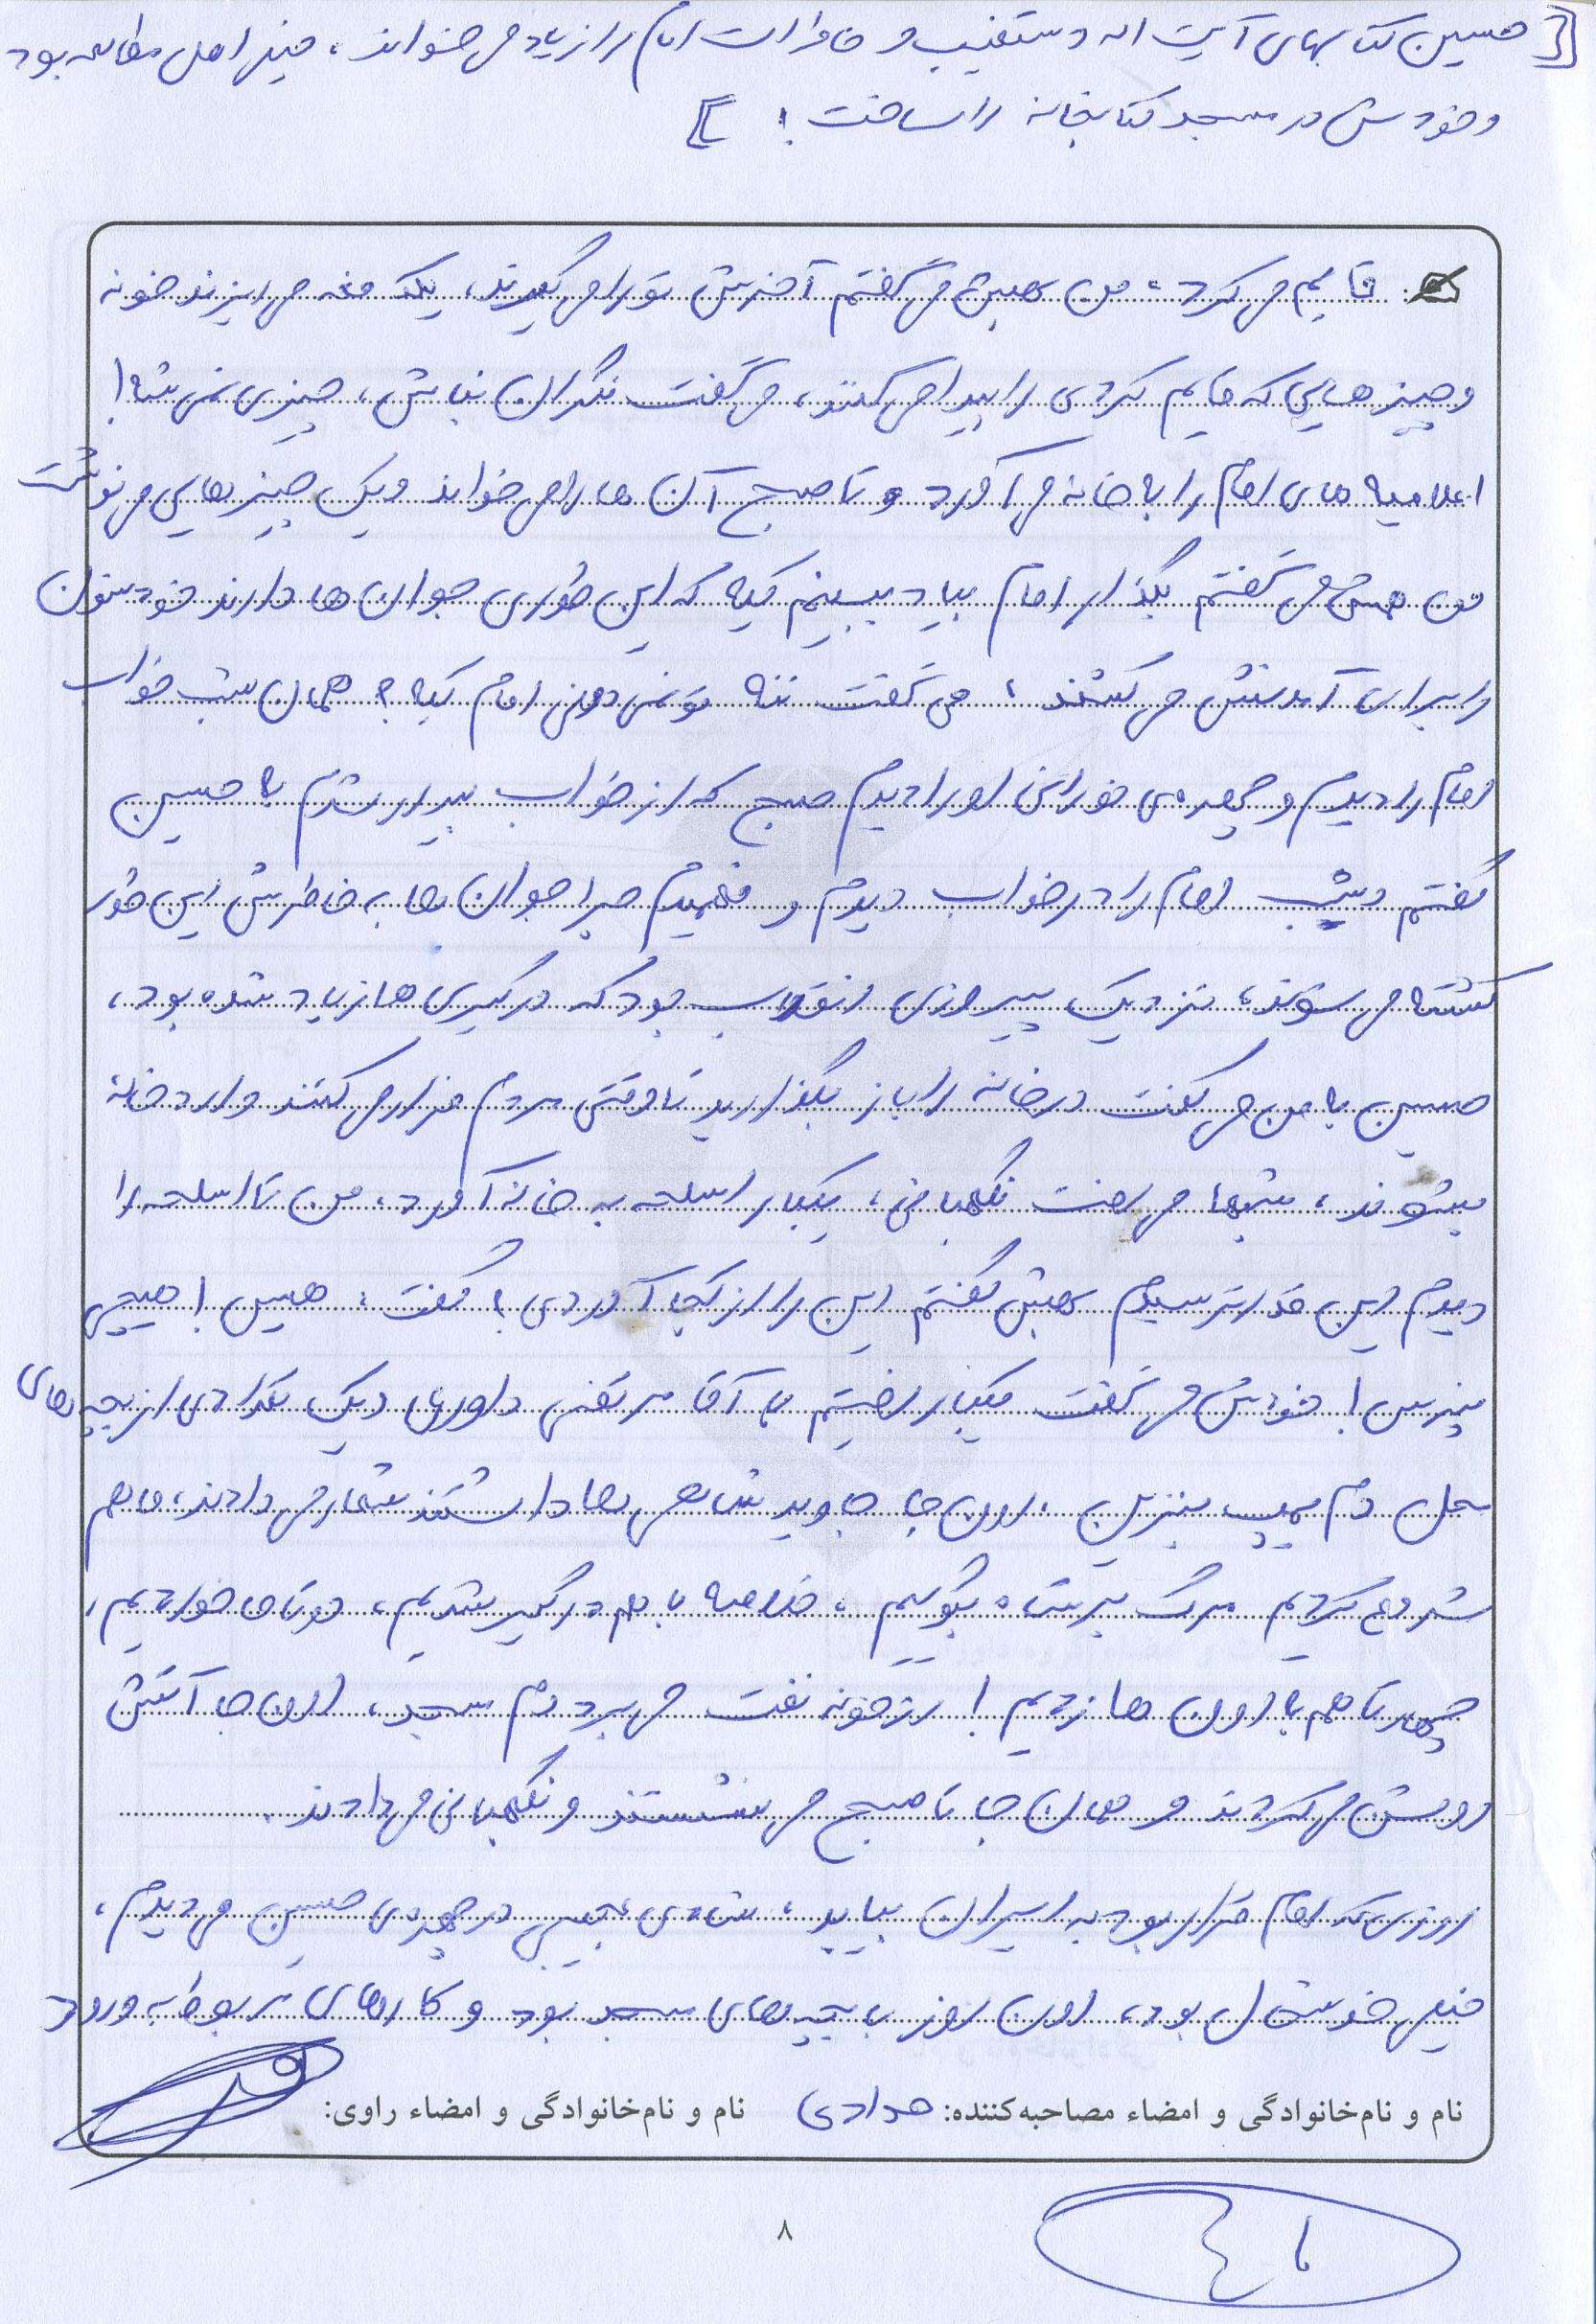 [[ حسین کتابهای آیت اله دستغیب و خاطرات امام را زیاد می خواند، خیلی اهل مطالعه بود
و خودش در مسجد کتابخانه را ساخت! ]]
قایم می کرد، من بهش می گفتم آخرش تو را می گیرند، یک دفعه می ریزند خونه
و چیزهایی که قایم کردی را پیدا می کنند، می گفت نگران نباش، چیزی نمی شه!
اعلامیه های امام را به خانه می آورد و تا صبح آن ها را می خواند و یک چیزهایی می نوشت
من بهش می گفتم بگذار امام بیاد ببینم کیه که این طوری جوان ها دارند خودشون
را برای آمدنش می کشند، می گفت ننه تو نمی دونی امام کیه؟ همان شب خواب
امام را دیدم و چهره ی نورانی او را دیدم صبح که از خواب بیدار شدم به حسین
گفتم دیشب امام را در خواب دیدم و فهمیدم چرا جوان ها به خاطرش این طور
کشته می شوند، نزدیک پیروزی انقلاب بود که درگیری ها زیاد شده بود،
حسین به من می گفت در خانه را باز بگذارید تا وقتی مردم فرار می کنند وارد خانه
بشوند، شبها می رفت نگهبانی، یکبار اسلحه به خانه آورد، من تا اسلحه را
دیدم این قدر ترسیدم بهش گفتم این را از کجا آوردی؟ گفت: هیس! هیچی
نپرس! خودش می گفت یکبار رفتیم با آقا مرتضی داوری و یک تعدادی از بچه های
محل دم پمپ بنزین، اون جا جاوید شاهی ها داشتند شعار می دادند، ما هم
شروع کردیم مرگ بر شاه بگوییم، خلاصه با هم درگیر شدیم، دو تا ما خوردیم،
چهار تا هم به اون ها زدیم! از خونه نفت می برد دم مسجد، اون جا آتش
روشن می کردند و همان جا تا صبح می نشستند و نگهبانی می دادند.
روزی که امام قرار بود به ایران بیاید، شادی عجیبی در چهره ی حسین می دیدم،
خیلی خوشحال بود، اون روز با بچه های مسجد بود و کارهای مربوط به ورود
نام و نام‌خانوادگی و امضاء مصاحبه‌کننده: مرادی نام و نام‌خانوادگی و امضاء راوی:
۸